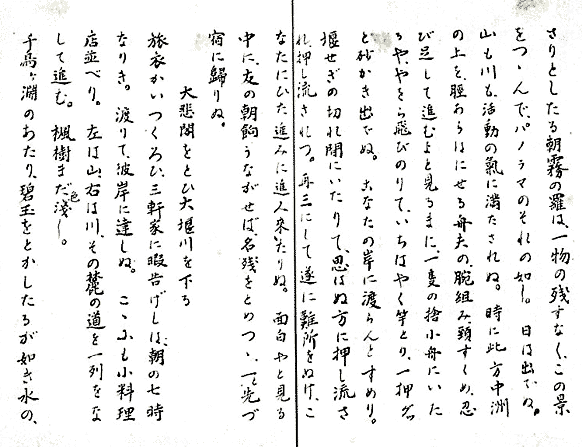 さりとしたる朝霧の羅は、一物の残すなく、この景
をつゝんで、パノラマのそれの如し。 日は出でぬ。
山も川も、活動の氣に満たされぬ。時に此方中洲
の上を、脛あらはにせる舟夫の、腕組み頸すくめ、忍
び足して進むよと見るまに、一隻の捨小舟にいた
るや、やをら飛びのりて、いちはやく竿とり、一押グッ
と砂かき出でぬ。 あなたの岸に渡らんとすめり。
堰せぎの切れ間にいたりて、思はぬ方に押し流さ
れ、押し流されつ。再三にして遂に難所をぬけ、こ
なたにひた進みに進入来たりぬ。 面白やと見る
中に、友の朝餉うながせば、名残をとめつゝ、一と先づ
宿に歸りぬ。
大悲閣をとひ大堰川を下る
旅衣かいつくろひ、三軒家に暇告げしは、朝の七時
なりき。渡りて彼岸に達しぬ。 こゝにも小料理
店並べり。 左は山、右は川、その麓の道を一列をな
して進む。 楓樹まだ色淺し。
千鳥ヶ淵のあたり、碧玉をとかしたるが如き水の、